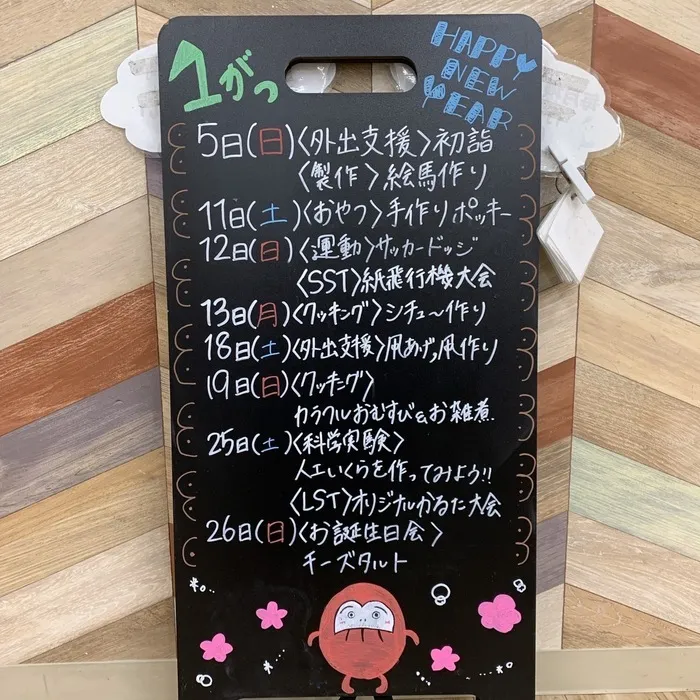 1がつ
HAPPY
NEW
YEAR
5日(日)〈外出支援〉初詣
〈製作〉絵馬作り
11日(土)〈おやつ〉手作りポッキー
12日(日)〈運動〉サッカードッジ
〈SST〉紙飛行機大会
13日(月)〈クッキング〉シチュ〜作り
18日(土)〈外出支援〉凧あげ,凧作り
19日(日)〈クッキング〉
カラフルおむすび&お雑煮.
25日(土)〈科学実験〉
人工いくらを作ってみよう!!
〈LST〉オリジナルかるた大会
26日(日)〈お誕生日会〉
チーズタルト